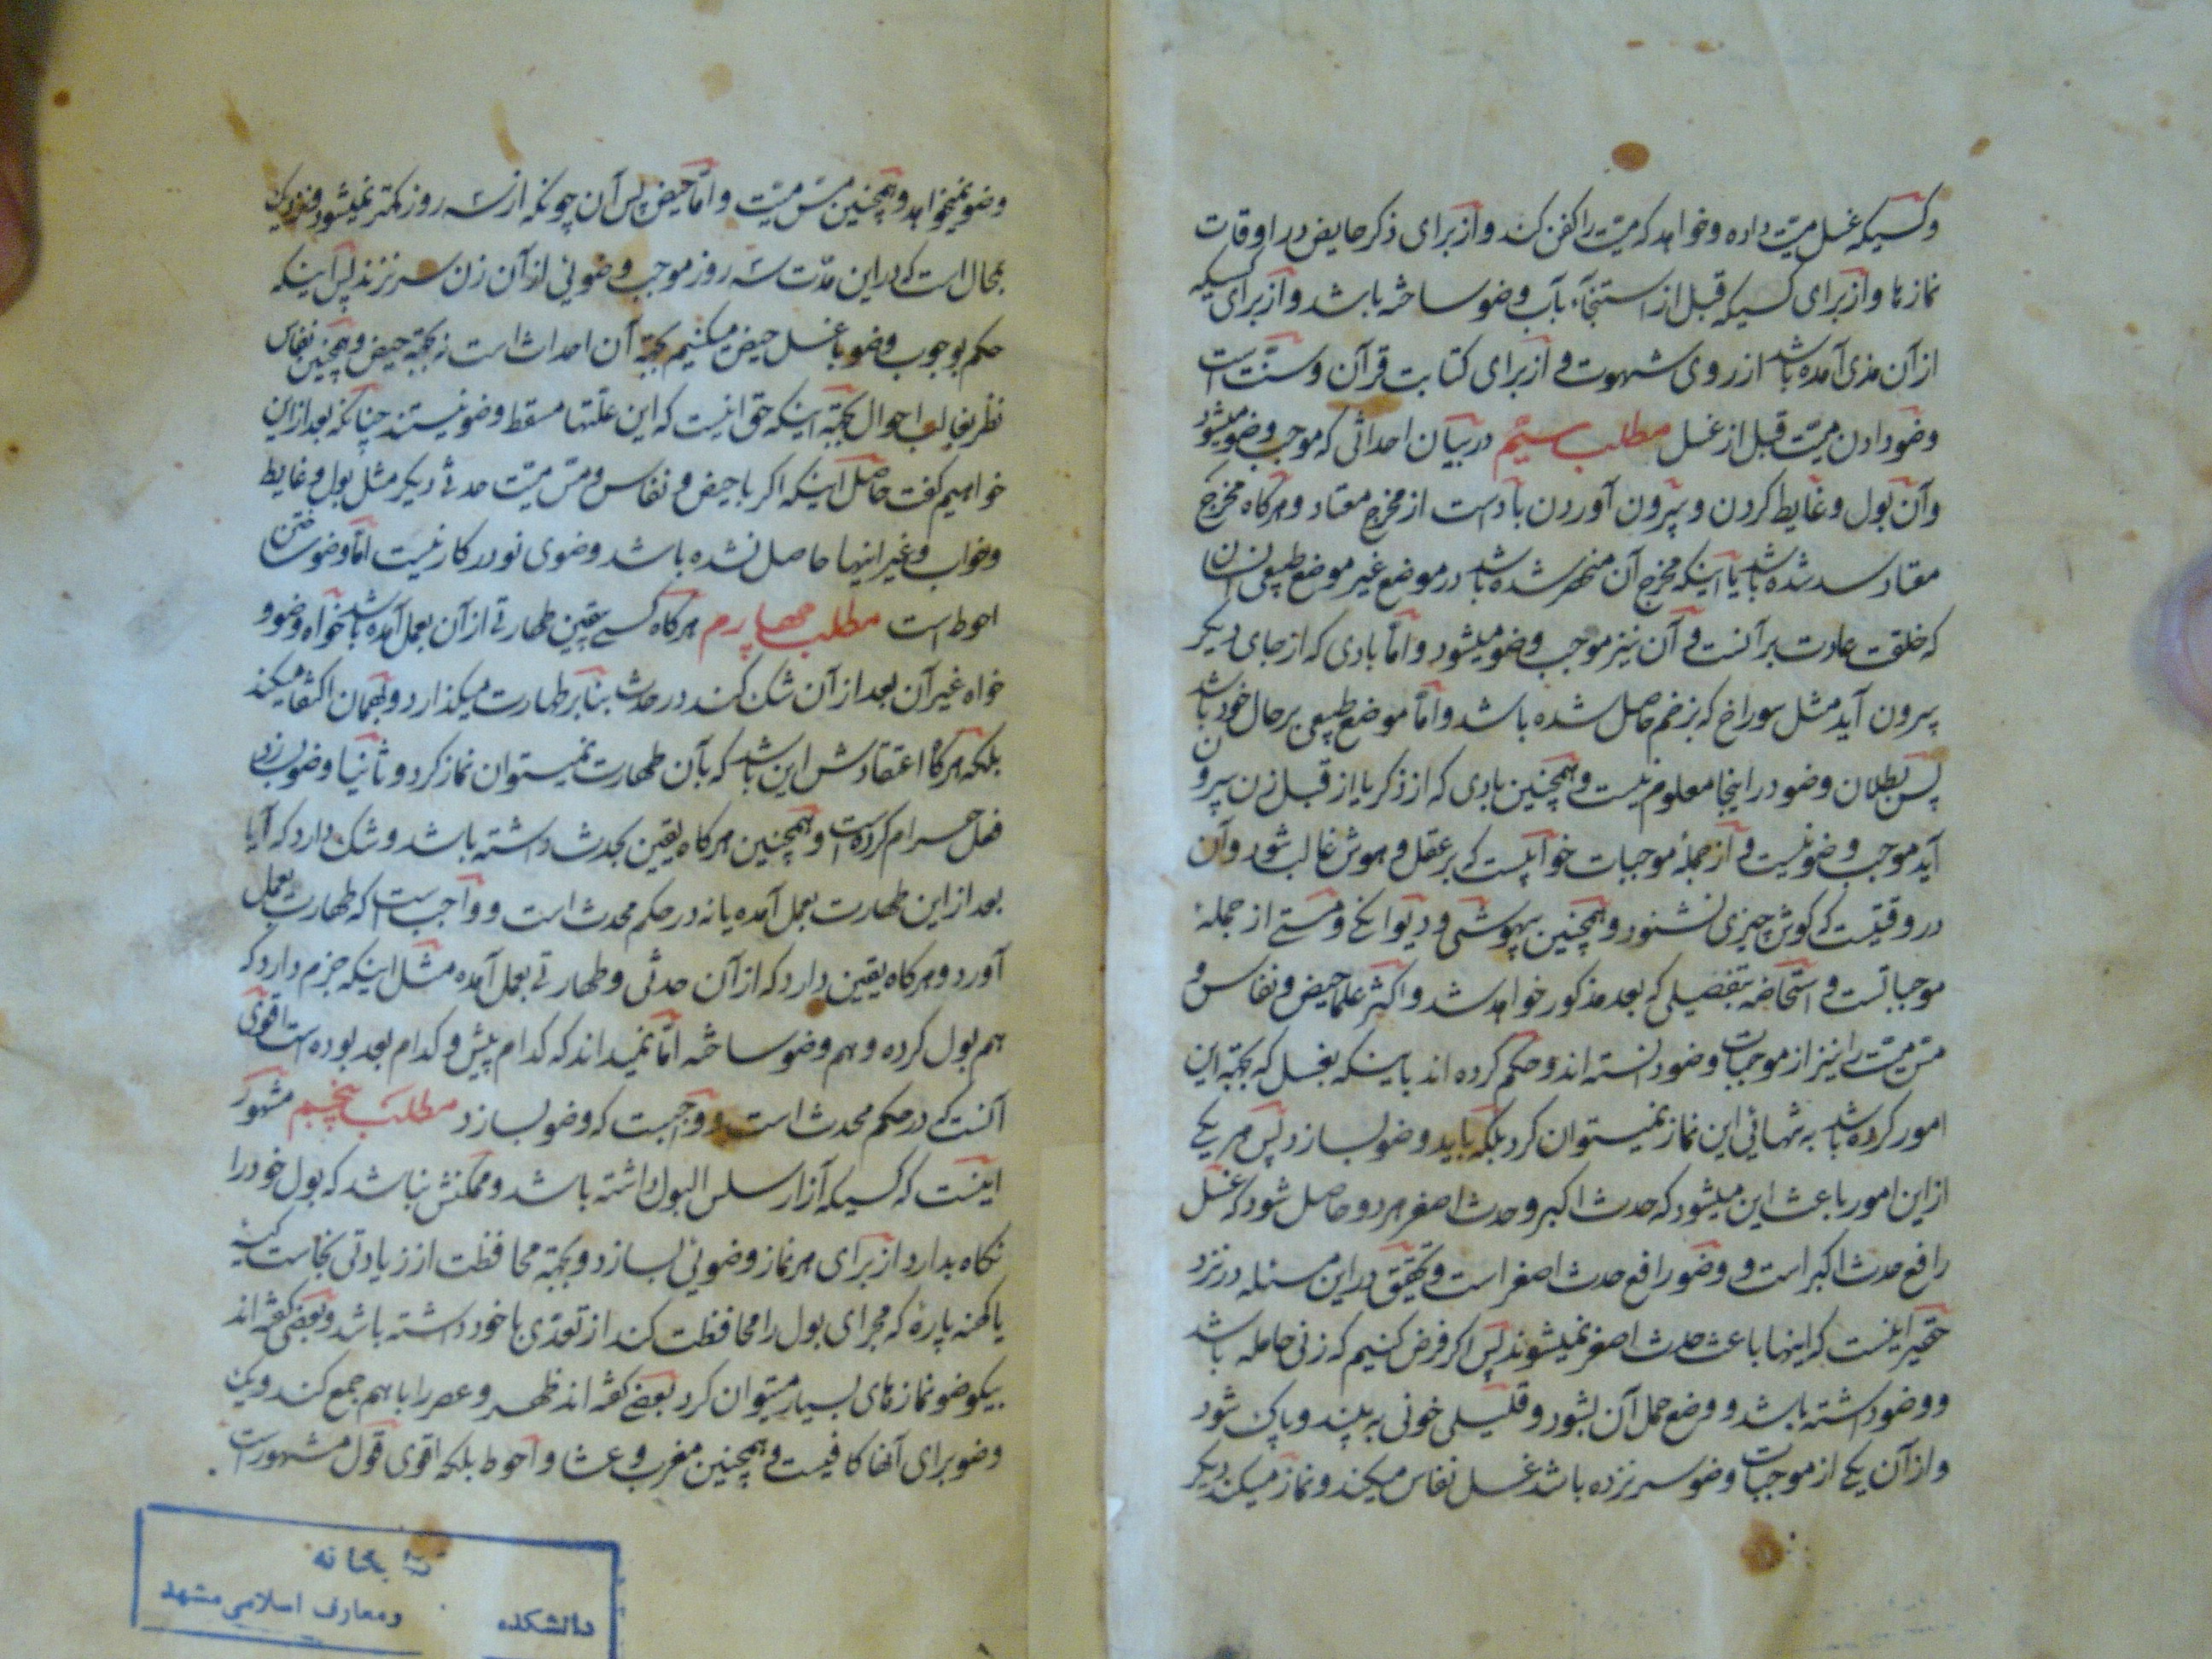 وکسیکه غسل میّت داده وخواهد که میّت را کفن کند و از برای ذکر حایض در اوقات
نمازها و از برای کسیکه قبل از استنجآء بآب وضو ساخته باشد و از برای کسیکه
از آن مذی آمده باشد از روی شهوت و از برای کتابت قرآن و سنّت است
وضو دادن میّت قبل از غسل مطلب سیّم در بیان احداثی که موجب وضو میشود
وآن بول و غایط کردن و بیرون آوردن باد است از مخرج معتاد و هرکاه مخرج
معتاد سد شده باشد یا اینکه مخرج آن منحصر شده باشد در موضع غیر موضع طبیعی انسان
که خلقت عادت بر آنست و آن نیز موجب وضو میشود و امّا بادی که از جای دیکر
بیرون آید مثل سوراخ که بزخم حاصل شده باشد و امّا موضع طبیعی بر حال خود باشد
پس بطلان وضو در اینجا معلوم نیست و همچنین بادی که از ذکر یا از قبل زن بیرون
آید موجب وضو نیست و از جملهٔ موجبات خوابیست که بر عقل و هوش غالب شود و آن
در وقتیست که کوش چیزی نشنود و همچنین بیهوشی و دیوانکی و مستی از جملهٔ
موجباتست و استحاضه بتفصیلی که بعد مذکور خواهد شد و اکثر علما حیض و نفاس و
مسّ میّت را نیز از موجبات وضو دانسته اند و حکم کرده اند باینکه بغسل که بجهة این
امور کرده باشد به تنهائی این نماز نمیتوان کرد بلکه باید وضو بسازد پس هر یکی
از این امور باعث این میشود که حدث اکبر و حدث اصغر هر دو حاصل شود که غسل
رافع حدث اکبر است و وضو رافع حدث اصغر است و تحقیق در این مسئله در نزد
حقیر اینست که اینها باعث حدث اصغر نمیشوند پس اکر فرض کنیم که زنی حامله باشد
و وضو داشته باشد و وضع حمل آن بشود و قلیلی خونی به بیند و پاک شود
و از آن یکی از موجبات وضو سر نزده باشد غسل نفاس میکند و نماز میکند دیکر
وضو نمیخواهد و همچنین مسّ میّت و امّا حیض پس آن چونکه از سه روز کمتر نمیشود
محال است که در این مدّت سه روز موجب وضوئی از آن زن سر نزند پس اینکه
حکم بوجوب وضو با غسل حیض میکنیم بجهة آن احداث است نه بجهة حیض و همچنین نفاس
نظر بغالب احوال بجهة اینکه حق اینست که این علّتها مسقط وضو نیستند چنانکه بعد از این
خواهیم کفت حاصل اینکه اکر با حیض و نفاس و مسّ میّت حدثی دیکر مثل بول و غایط
و خواب و غیر اینها حاصل نشده باشد وضوی نو در کار نیست امّا وضو ساختن
احوط است مطلب چهارم هرکاه کسی یقین طهارتی از آن بعمل آمده باشد خواه وضو و
خواه غیر آن بعد از آن شک کند در حدث بنا بر طهارت میکذارد و بهمان اکتفا میکند
بلکه هرکاه اعتقادش این باشد که بآن طهارت نمیتوان نماز کرد و ثانیا وضو بسازد
فعل حرام کرده است و همچنین هرکاه یقین بحدث داشته باشد و شک دارد که آیا
بعد از این طهارت بعمل آمده یا نه در حکم محدث است و واجب است که طهارت بعمل
آورد و هرکاه یقین دارد که از آن حدثی و طهارتی بعمل آمده مثل اینکه جزم دارد که
هم بول کرده و هم وضو ساخته امّا نمیداند که کدام پیش و کدام بعد بوده است اقوی
آنست که در حکم محدث است و واجبست که وضو بسازد مطلب پنجم مشهور
اینست که کسیکه آزار سلس البول داشته باشد و ممکنش نباشد که بول خود را
نکاه بدارد از برای هر نماز وضوئی بسازد و بجهة محافظت از زیادتی نجاست کیسه
یا کهنه پارهٔ که مجرای بول را محافظت کند از تعدّی با خود داشته باشد و بعضی کفته اند
بیکوضو نمازهای بسیار میتوان کرد بعضی کفته اند ظهر و عصر را با هم جمع کند و یک
وضو برای آنها کافیست و همچنین مغرب و عشا و احوط بلکه اقوی قول مشهور است
کتابخانه
دانشکده ومعارف اسلامی مشهد